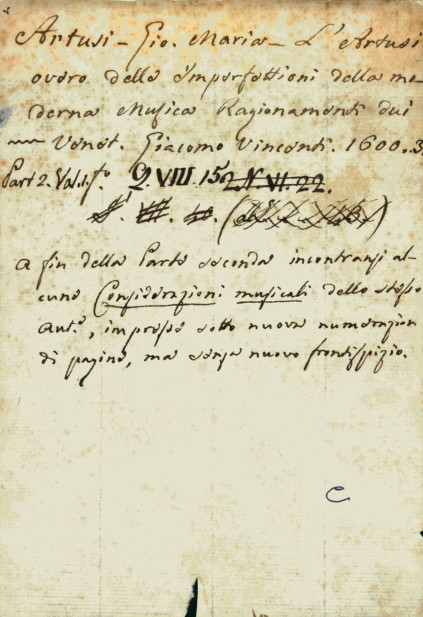 Artusi - Gio. Maria - L'Artusi
overo delle imperfettioni della mo-
derna Musica Ragionamenti dui
Venet. Giacomo Vincenti. 1600..3.
Part 2. Vol.1. fo Q.VIII.15. 2.N.VI.22.
A fin della Parte seconda incontransi al-
cune Considerazioni musicali dello stesso
Aut.e, impresse sotto nuova numerazion
di pagine, ma senza nuovo frontispizio.
C